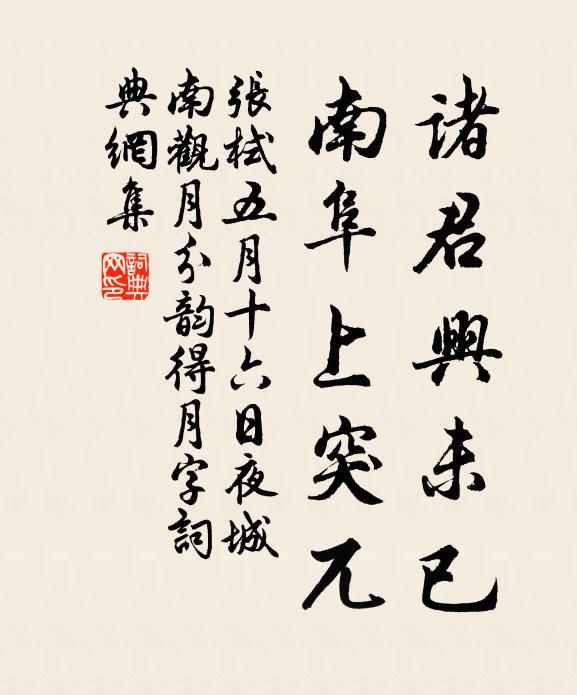 諸君興未已
南阜上突兀
張栻五月十六日夜城
南觀月分韵得月字詞
典網集
詞典网印